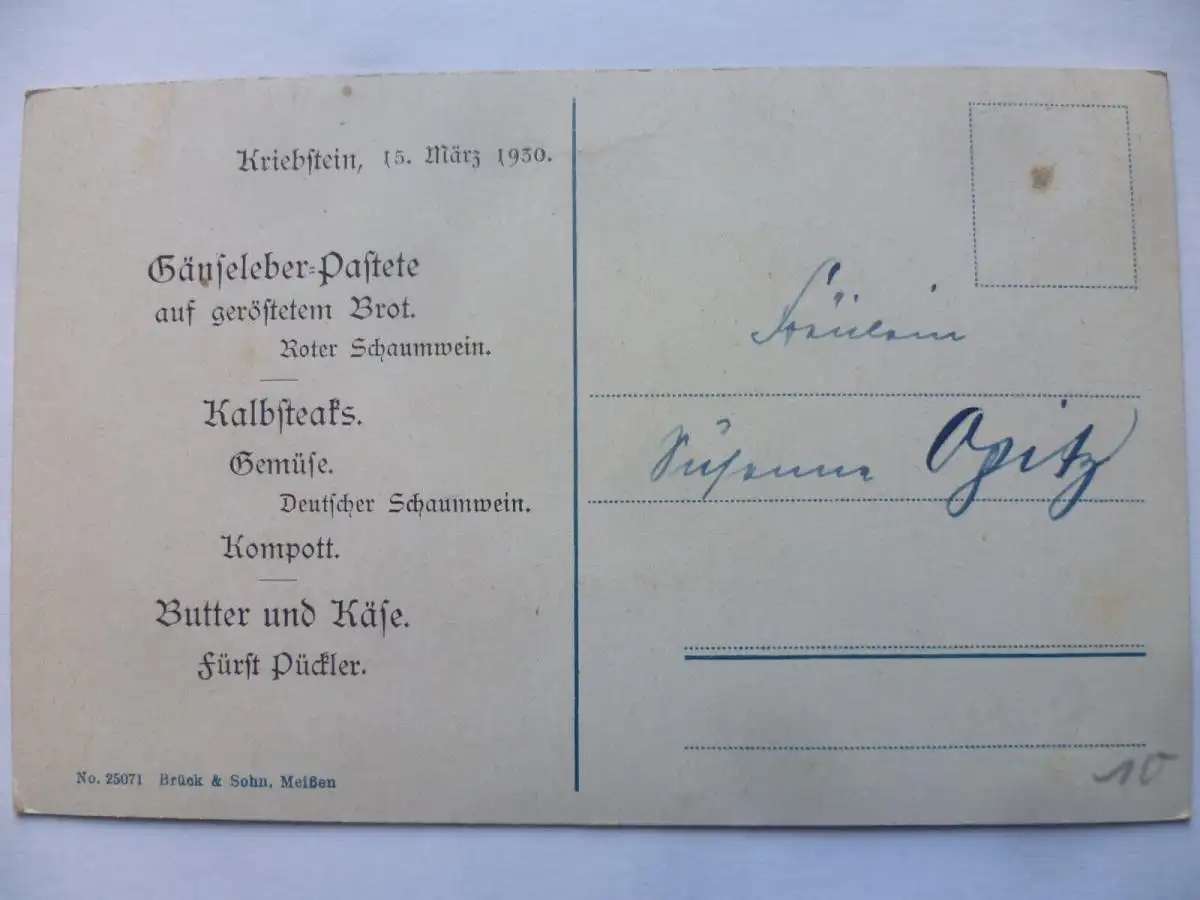 Kriebstein, 15. März 1930.
Gänseleber-Pastete
auf geröstetem Brot.
Roter Schaumwein.
Kalbsteaks.
Gemüse.
Deutscher Schaumwein.
Kompott.
Butter und Käse.
Fürst Pückler.
No. 25071 Brück & Sohn, Meißen
Fräulein
Susanne Opitz
10